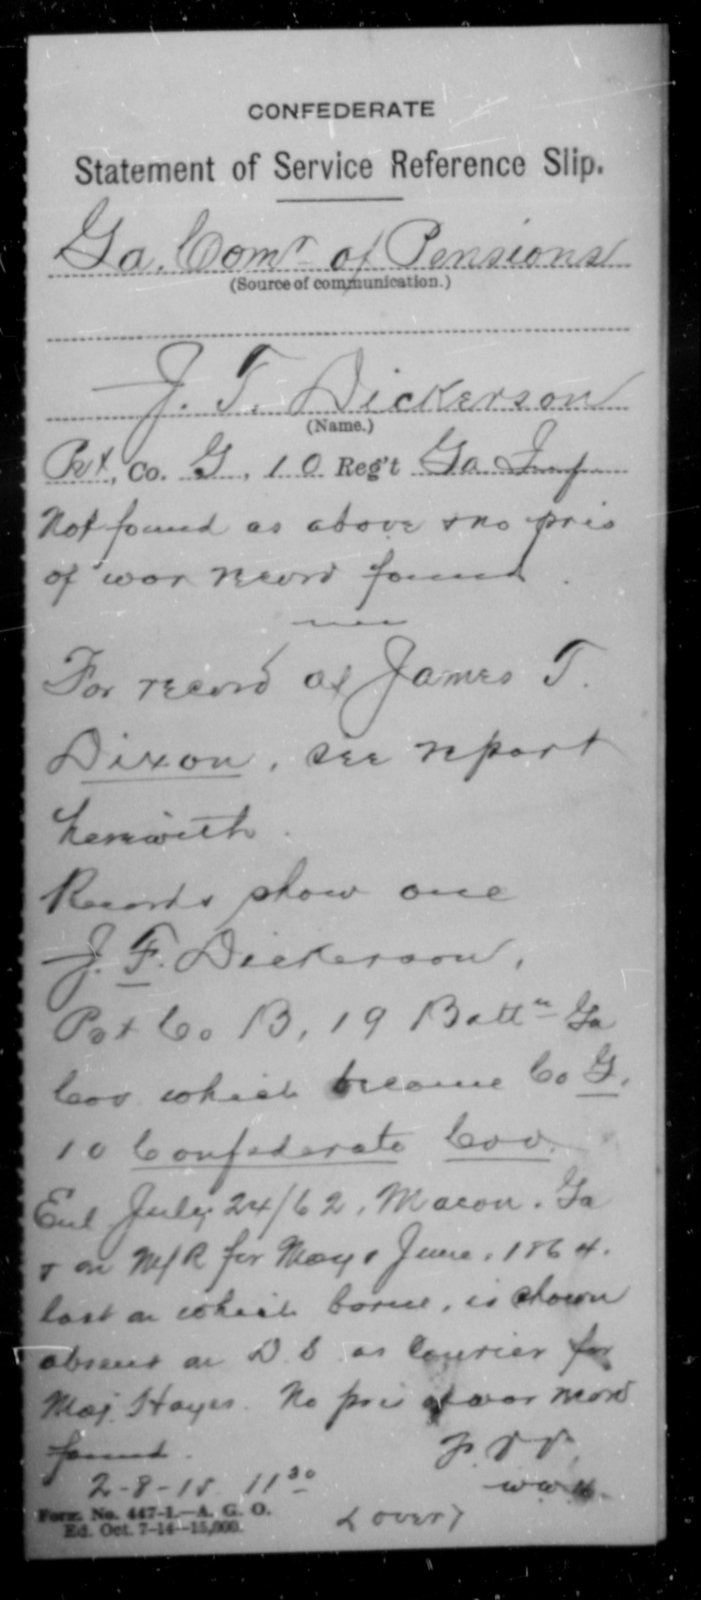 CONFEDERATE
Statement of Service Reference Slip.
Ga. Comr of Pensions
(Source of communication.)
J. T. Dickerson
(Name.)
Pvt, Co. G, 10 Reg't Ga Inf
Not found as above & no pris
of war record found.
For record of James T.
Dixon, see report
herewith.
Records show one
J. F. Dickerson,
Pvt Co B, 19 Battn Ga
Cav which became Co G,
10 Confederate Cav.
Enl July 24/62, Macon, Ga
& on M/R for May & June, 1864.
last on which borne, is shown
absent on D.S. as Courier for
Maj. Hayes. No pris of war record
found.
2-8-15 11 30
(over)
Form No. 447-1.—A. G. O.
Ed. Oct. 7-14—15,000.